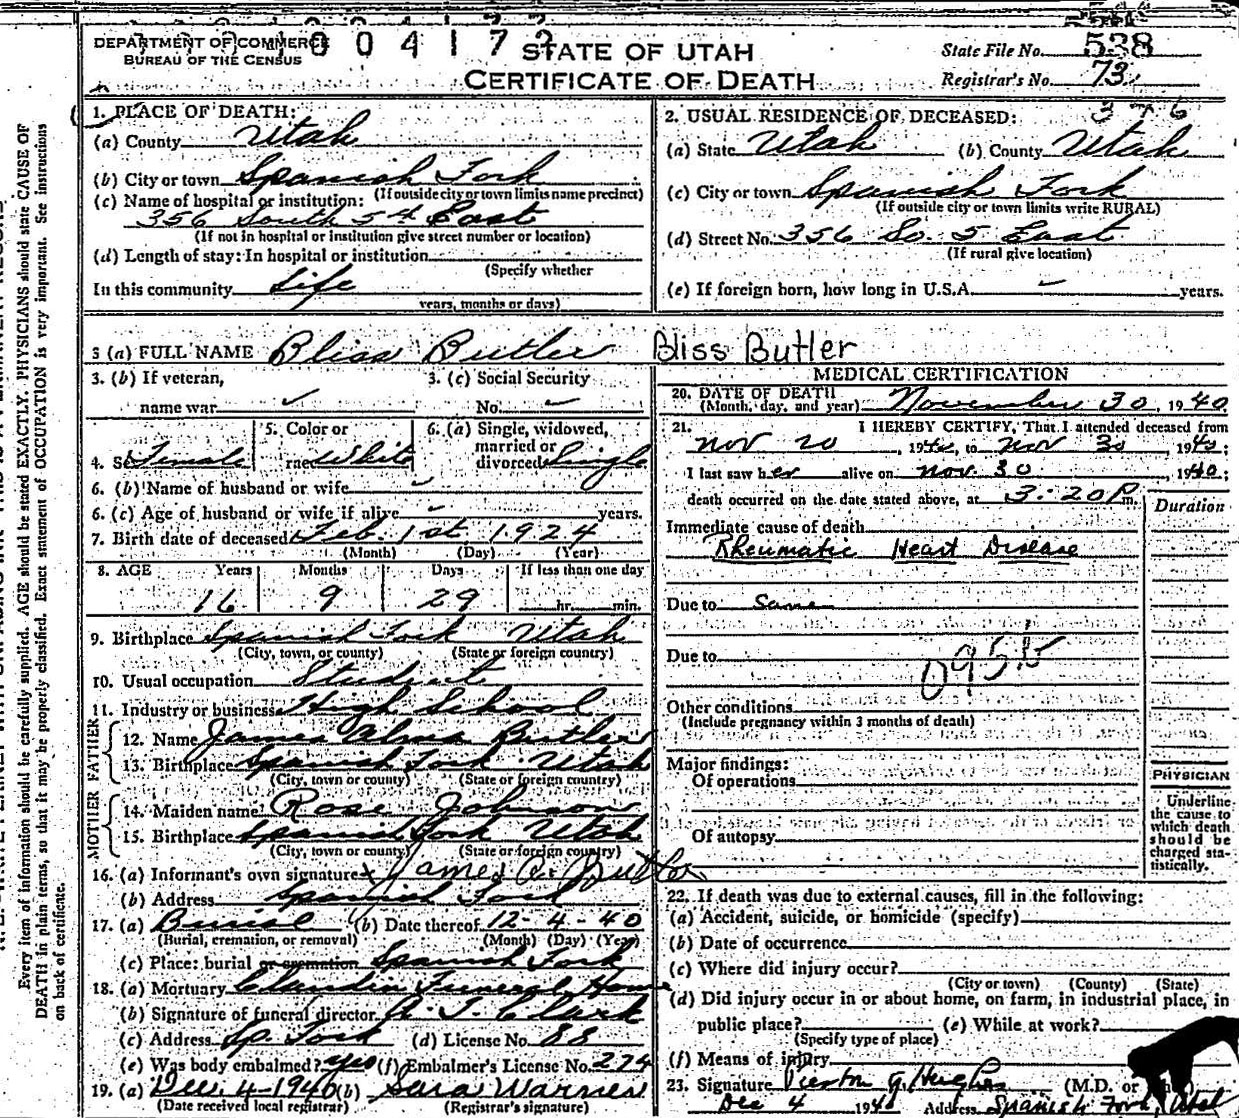 DEPARTMENT OF COMMERCE
BUREAU OF THE CENSUS
004172
STATE OF UTAH
CERTIFICATE OF DEATH
State File No. 538
Registrar's No. 73
1. PLACE OF DEATH:
(a) County Utah
(b) City or town Spanish Fork
(If outside city or town limits name precinct)
(c) Name of hospital or institution:
356 South 5th East
(If not in hospital or institution give street number or location)
(d) Length of stay: In hospital or institution
(Specify whether
In this community Life
years, months or days)
2. USUAL RESIDENCE OF DECEASED:
(a) State Utah (b) County Utah
(c) City or town Spanish Fork
(If outside city or town limits write RURAL)
(d) Street No. 356 So. 5 East
(If rural give location)
(e) If foreign born, how long in U.S.A. years.
3 (a) FULL NAME Bliss Butler Bliss Butler
3. (b) If veteran, name war
3. (c) Social Security No.
4. Sex Female
5. Color or race White
6. (a) Single, widowed, married or divorced Single
6. (b) Name of husband or wife
6. (c) Age of husband or wife if alive years.
7. Birth date of deceased Feb. 1st 1924
(Month) (Day) (Year)
8. AGE Years Months Days If less than one day
16 9 29 hr. min.
9. Birthplace Spanish Fork Utah
(City, town, or county) (State or foreign country)
10. Usual occupation Student
11. Industry or business High School
FATHER
12. Name James Alma Butler
13. Birthplace Spanish Fork Utah
(City, town or county) (State or foreign country)
MOTHER
14. Maiden name Rose Johnson
15. Birthplace Spanish Fork Utah
(City, town or county) (State or foreign country)
16. (a) Informant's own signature x James A. Butler
(b) Address Spanish Fork
17. (a) Burial (b) Date thereof 12-4-40
(Burial, cremation, or removal) (Month) (Day) (Year)
(c) Place: burial or cremation Spanish Fork
18. (a) Mortuary Claudin Funeral Home
(b) Signature of funeral director A. J. Clark
(c) Address Sp. Fork (d) License No. 88
(e) Was body embalmed? yes (f) Embalmer's License No. 274
19. (a) Dec. 4-1940 (b) Sara Warner
(Date received local registrar) (Registrar's signature)
MEDICAL CERTIFICATION
20. DATE OF DEATH
(Month, day, and year) November 30, 1940
21. I HEREBY CERTIFY, That I attended deceased from
Nov 20, 1940, to Nov 30 1940;
I last saw her alive on Nov. 30 1940;
death occurred on the date stated above, at 3:20 P.m.
Duration
Immediate cause of death
Rheumatic Heart Disease
Due to Same
Due to
Other conditions
(Include pregnancy within 3 months of death)
Major findings:
Of operations
Of autopsy
PHYSICIAN
Underline
the cause to
which death
should be
charged sta-
tistically.
22. If death was due to external causes, fill in the following:
(a) Accident, suicide, or homicide (specify)
(b) Date of occurrence
(c) Where did injury occur?
(City or town) (County) (State)
(d) Did injury occur in or about home, on farm, in industrial place, in
public place? (e) While at work?
(Specify type of place)
(f) Means of injury
23. Signature Preston G. Hughes (M.D. or
Dec 4 1940 Address Spanish Fork, Utah
Every item of information should be carefully supplied. AGE should be stated EXACTLY. PHYSICIANS should state CAUSE OF
DEATH in plain terms, so that it may be properly classified. Exact statement of OCCUPATION is very important. See instructions
on back of certificate.